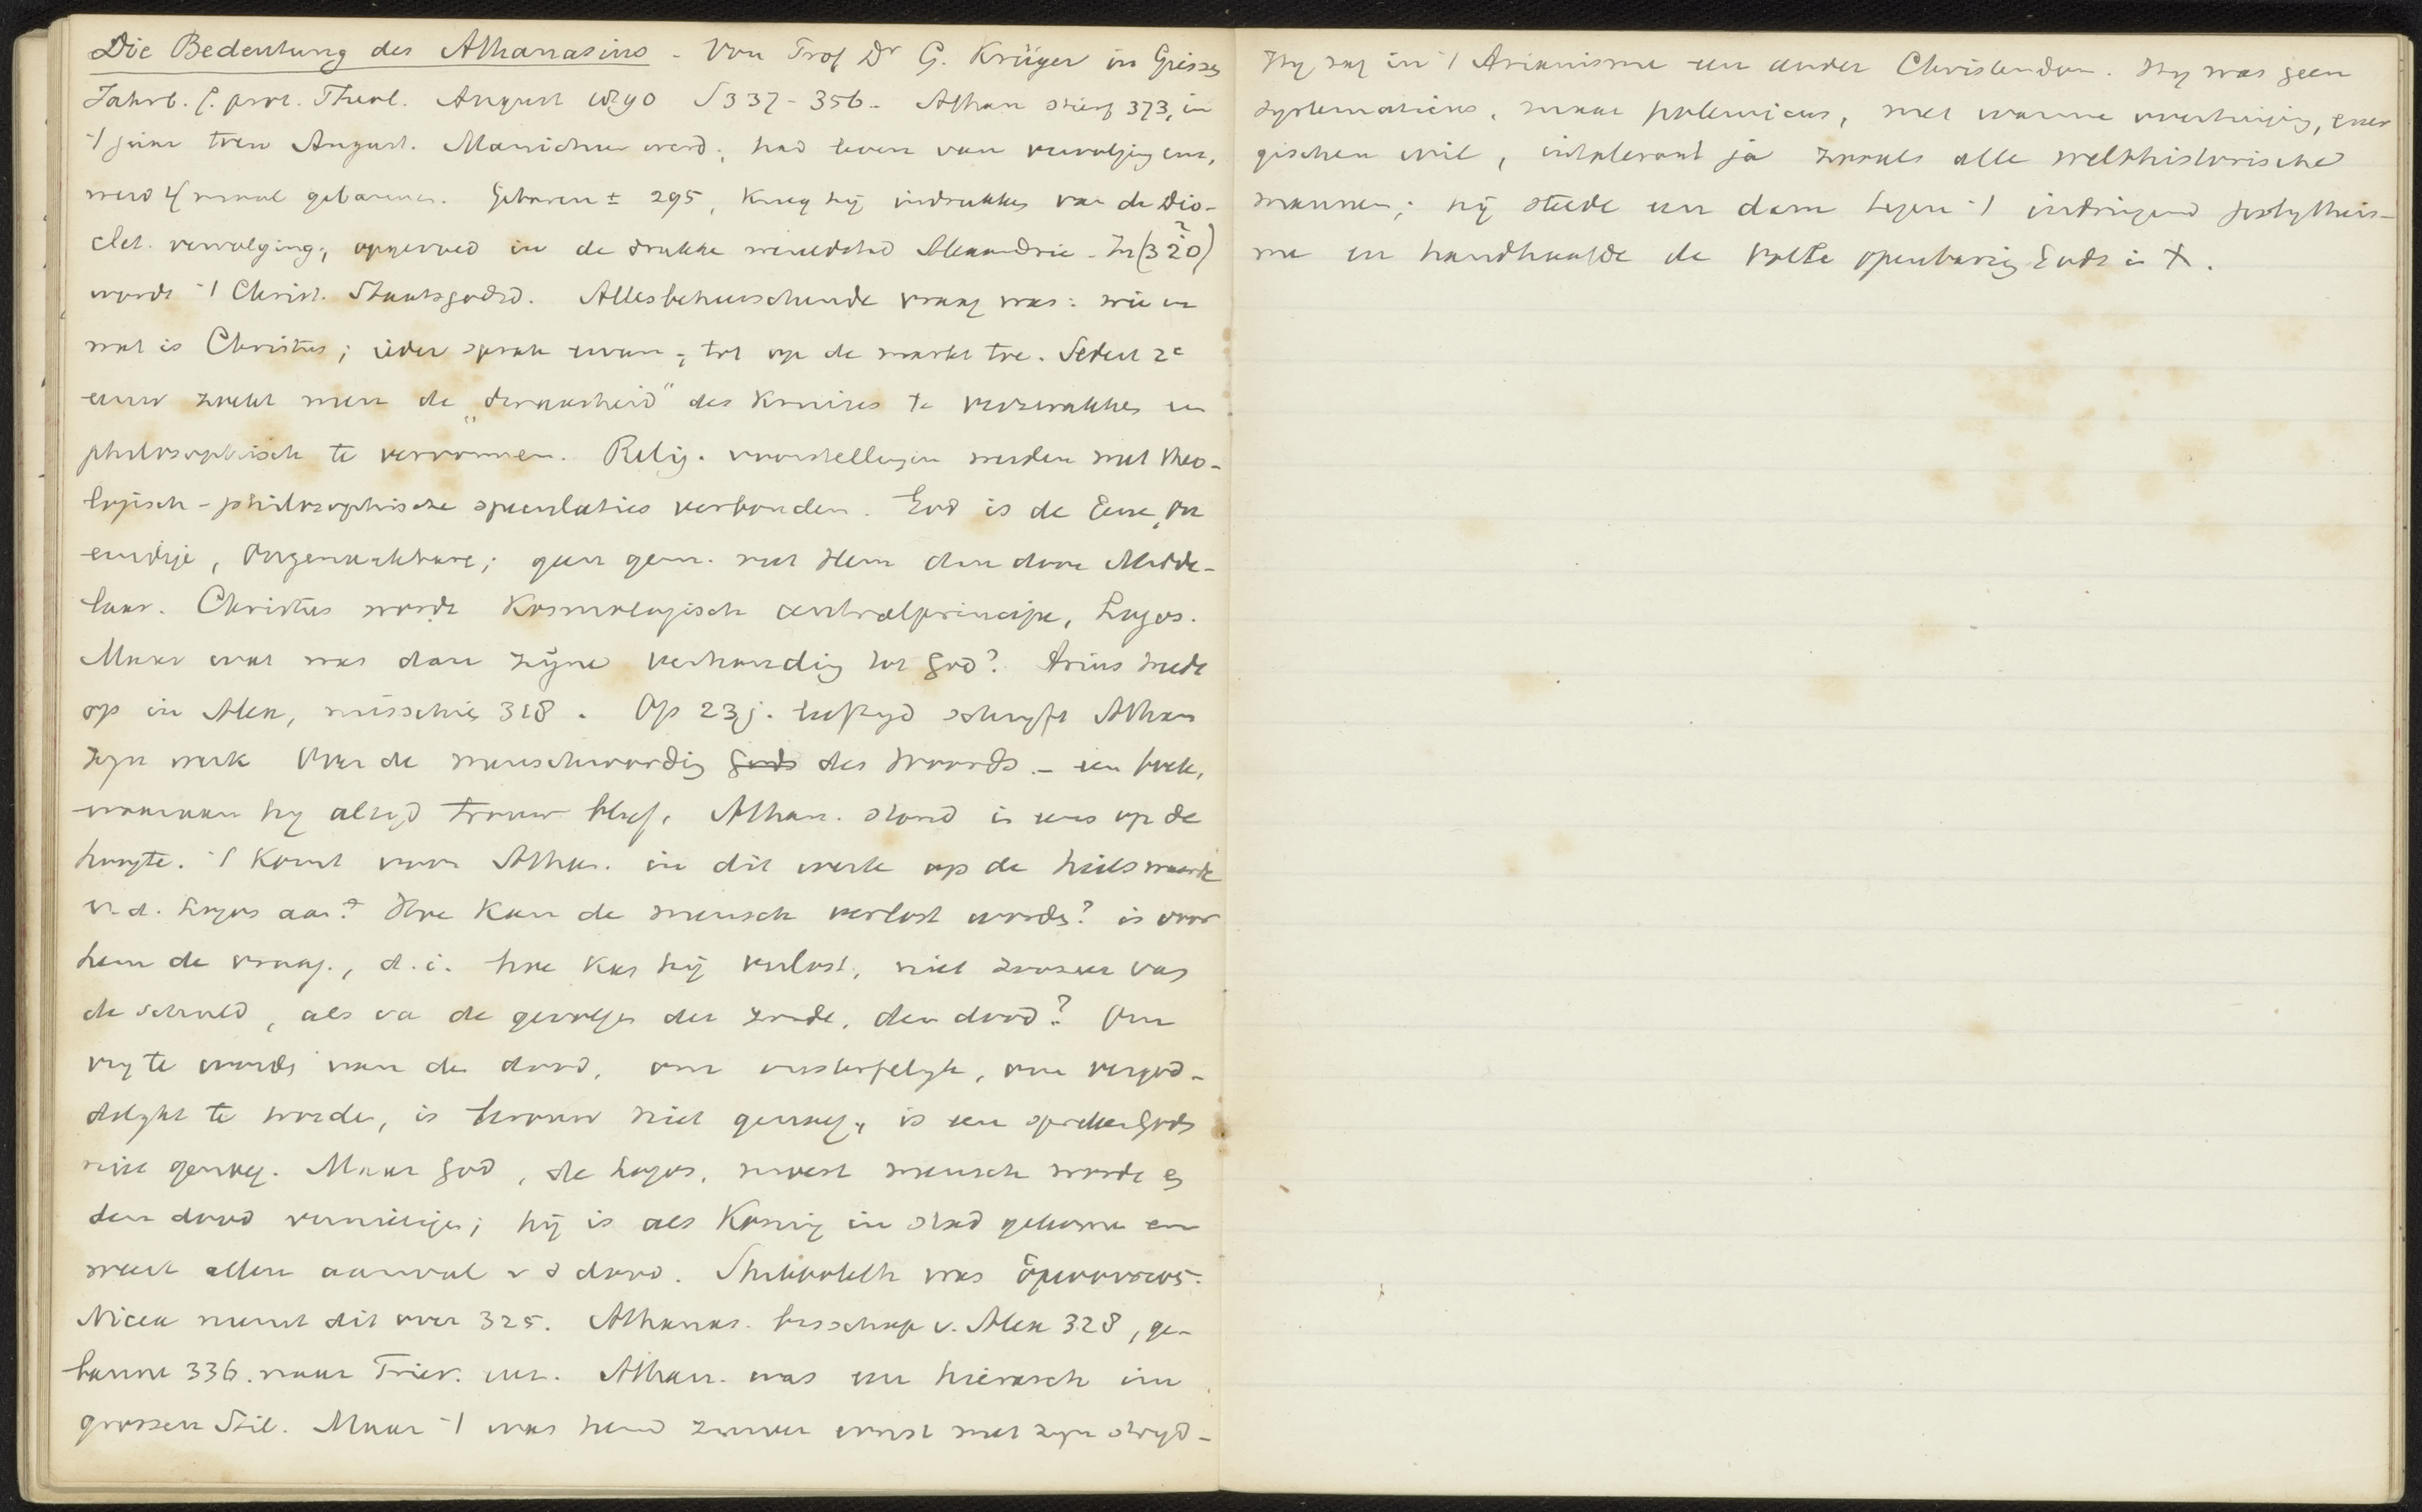 Die Bedeutung des Athanasius - Von Prof Dr G. Krüger in Giessen
Jahrb. f. prot. Theol. August 1890 S 337-356 - Athan stierf 373, in
't jaar toen August. Manicheer werd; had leven van vervolgingen,
werd 4 maal gebannen. Geboren ± 295, kreeg hij indrukken van de Dio-
clet. vervolging, opgevoed in de drukke wereldstad Alexandrie. In (320?)
wordt 't Christ. Staatsgodsd. Allesbeheerschende vraag was: wie en
wat is Christus; ieder sprak ervan, tot op de markt toe. Sedert 2e
eeuw zocht men de „dwaasheid" des kruises te verzwakken en
philosophisch te vervormen. Relig. voorstellingen werden met theo-
logisch-philosophische speculaties verbonden. God is de Eene, On
eindige, Ongenaakbare; geen gem. met Hem dan door Midde-
laar. Christus wordt kosmologisch centralprincipe, Logos.
Maar wat was dan zijne verhouding tot God? Arius treedt
op in Alex, misschien 318. Op 23j. leeftijd schrijft Athan
zijn werk Over de menschwording Gods des Woords - een boek,
waaraan hij altijd trouw bleef. Athan. stond in eens op de
hoogte. 't Komt voor Athan. in dit werk op de heilswaarde
v. d. Logos aan. Hoe kan de mensch verlost worden? is voor
hem de vraag, d.i. hoe kan hij verlost, niet zoozeer van
de schuld, als va de gevolgen der zonde, den dood? Om
vrij te worden van den dood, om onsterfelijk, om vergod-
delijkt te worden, is berouw niet genoeg, is een spreken Gods
niet genoeg. Maar God, de Logos, moest mensch worden en
den dood vernietigen; hij is als Koning in stad gekomen en
weert allen aanval v d dood. Shibboleth was ὁμοουσιος.
Nicea neemt dit over 325. Athanas. bisschop v. Alex 328, ge-
bannen 336 naar Trier. enz. Athan. was een hierarch im
grossen Stil. Maar 't was hem zuiver ernst met zijn strijd -
Hij zag in 't Arianisme een ander Christendom. Hij was geen
systematicus, maar polemicus, met warme overtuiging, ener
gischen wil, intolerant ja zooals alle welthistorische
mannen; hij stelde een dam tegen 't indringend polytheis-
me en handhaafde de volle openbaring Gods in X.